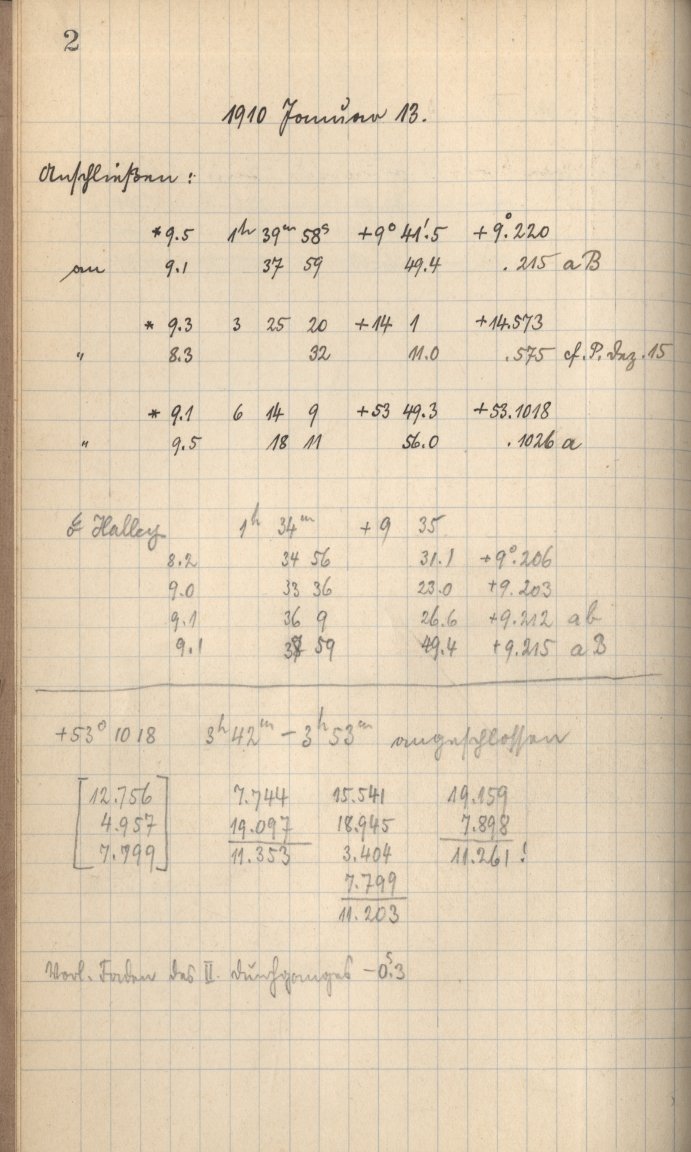 2
1910 Januar 13.
Anschließen:
* 9.5 1h 39m 58s +9° 41'.5 +9°.220
an 9.1 37 59 49.4 .215 aB
* 9.3 3 25 20 +14 1 +14.573
" 8.3 32 11.0 .575 cf. P. Dez. 15
* 9.1 6 14 9 +53 49.3 +53.1018
" 9.5 18 11 56.0 .1026 a
☄ Halley 1h 34m +9 35
8.2 34 56 31.1 +9°.206
9.0 33 36 23.0 +9.203
9.1 36 9 26.6 +9.212 ab
9.1 37 59 49.4 +9.215 aB
+53° 1018 3h 42m – 3h 53m angeschlossen
[12.756 7.744 15.541 19.159
4.957 19.097 18.945 7.898
7.799] 11.353 3.404 11.261!
7.799
11.203
Vorl. Faden des II. Durchganges –0s.3